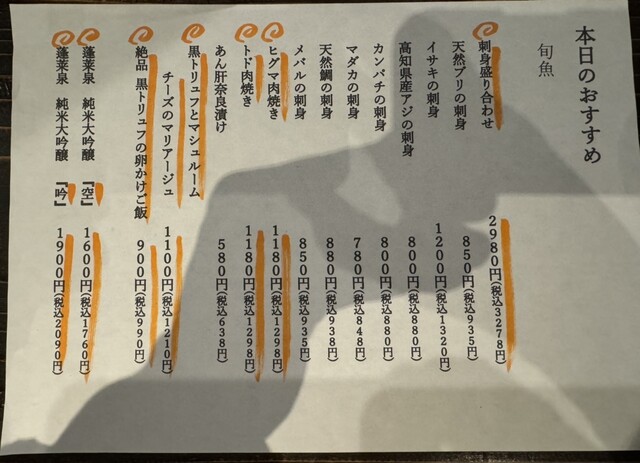 本日のおすすめ
旬魚
刺身盛り合わせ 2980円(税込3278円)
天然ブリの刺身 850円(税込935円)
イサキの刺身 1200円(税込1320円)
高知県産アジの刺身 800円(税込880円)
カンパチの刺身 800円(税込880円)
マダカの刺身 780円(税込848円)
天然鯛の刺身 880円(税込938円)
メバルの刺身 850円(税込935円)
ヒグマ肉焼き 1180円(税込1298円)
トド肉焼き 1180円(税込1298円)
あん肝奈良漬け 580円(税込638円)
黒トリュフとマシュルーム
チーズのマリアージュ 1100円(税込1210円)
絶品 黒トリュフの卵かけご飯 900円(税込990円)
蓬莱泉 純米大吟醸 『空』 1600円(税込1760円)
蓬莱泉 純米大吟醸 『吟』 1900円(税込2090円)